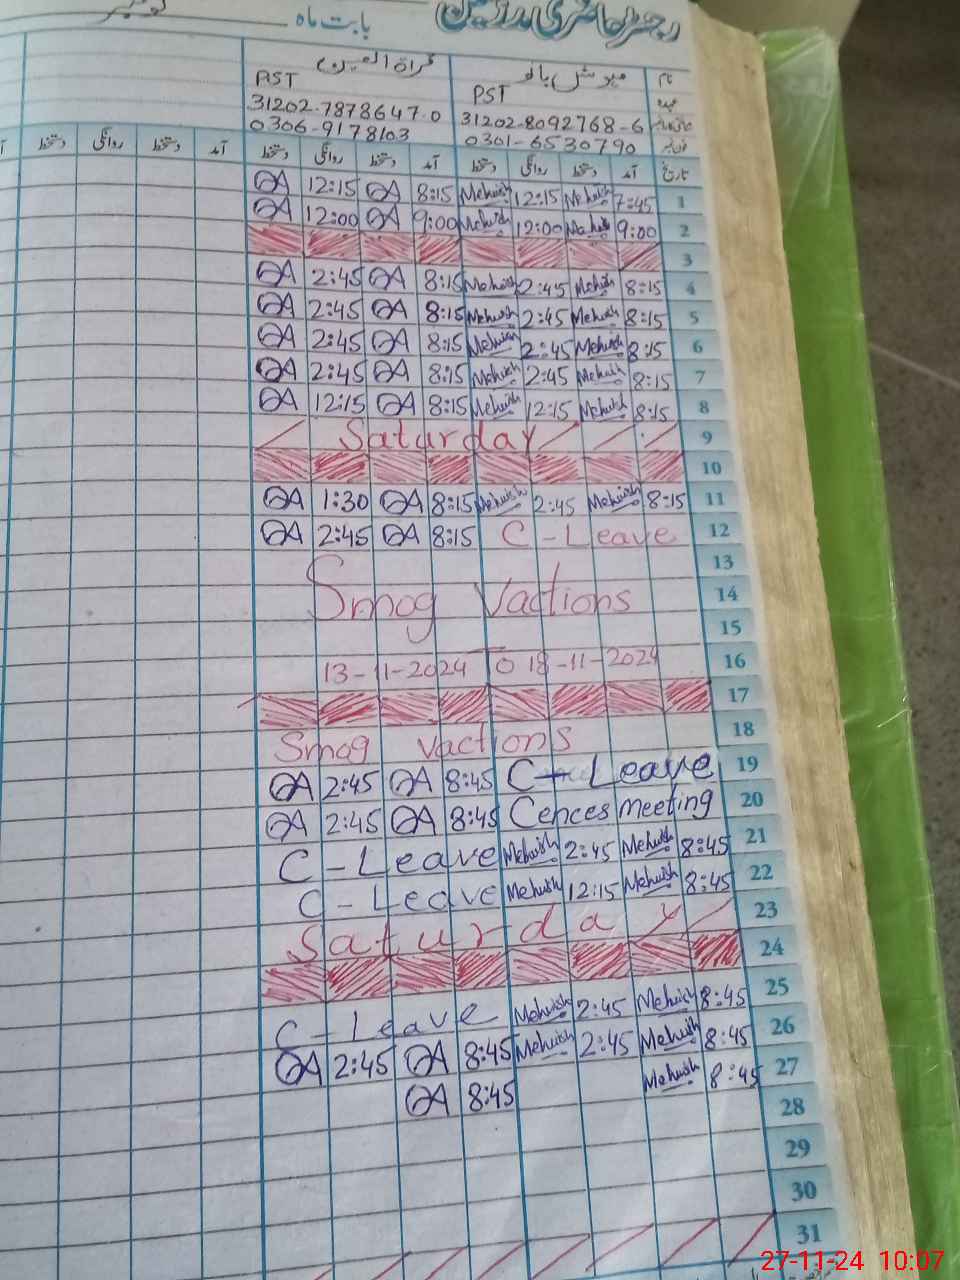 رجسٹر حاضری مدرسین
بابت ماہ
نام مہوش بانو قراۃ العین
عہدہ PST PST
31202-8092768-6 31202-7878647-0
0301-6530790 0306-9178103
تاریخ آمد دستخط روانگی دستخط آمد دستخط روانگی دستخط آمد دستخط روانگی دستخط
1 7:45 Mehwish 12:15 Mehwish 8:15 QA 12:15 QA
2 9:00 Mehwish 12:00 Mehwish 9:00 QA 12:00 QA
3
4 8:15 Mehwish 2:45 Mehwish 8:15 QA 2:45 QA
5 8:15 Mehwish 2:45 Mehwish 8:15 QA 2:45 QA
6 8:15 Mehwish 2:45 Mehwish 8:15 QA 2:45 QA
7 8:15 Mehwish 2:45 Mehwish 8:15 QA 2:45 QA
8 8:15 Mehwish 12:15 Mehwish 8:15 QA 12:15 QA
9 Saturday
10
11 8:15 Mehwish 2:45 Mehwish 8:15 QA 1:30 QA
12 C-Leave 8:15 QA 2:45 QA
13
14 Smog Vactions
15
16 13-11-2024 To 18-11-2024
17
18 Smog vactions
19 C-Leave 8:45 QA 2:45 QA
20 Cences meeting 8:45 QA 2:45 QA
21 8:45 Mehwish 2:45 Mehwish C-Leave
22 8:45 Mehwish 12:15 Mehwish C-Leave
23 Saturday
24
25 8:45 Mehwish 2:45 Mehwish C-Leave
26 8:45 Mehwish 2:45 Mehwish 8:45 QA 2:45 QA
27 8:45 Mehwish 8:45 QA
28
29
30
31
27-11-24 10:07